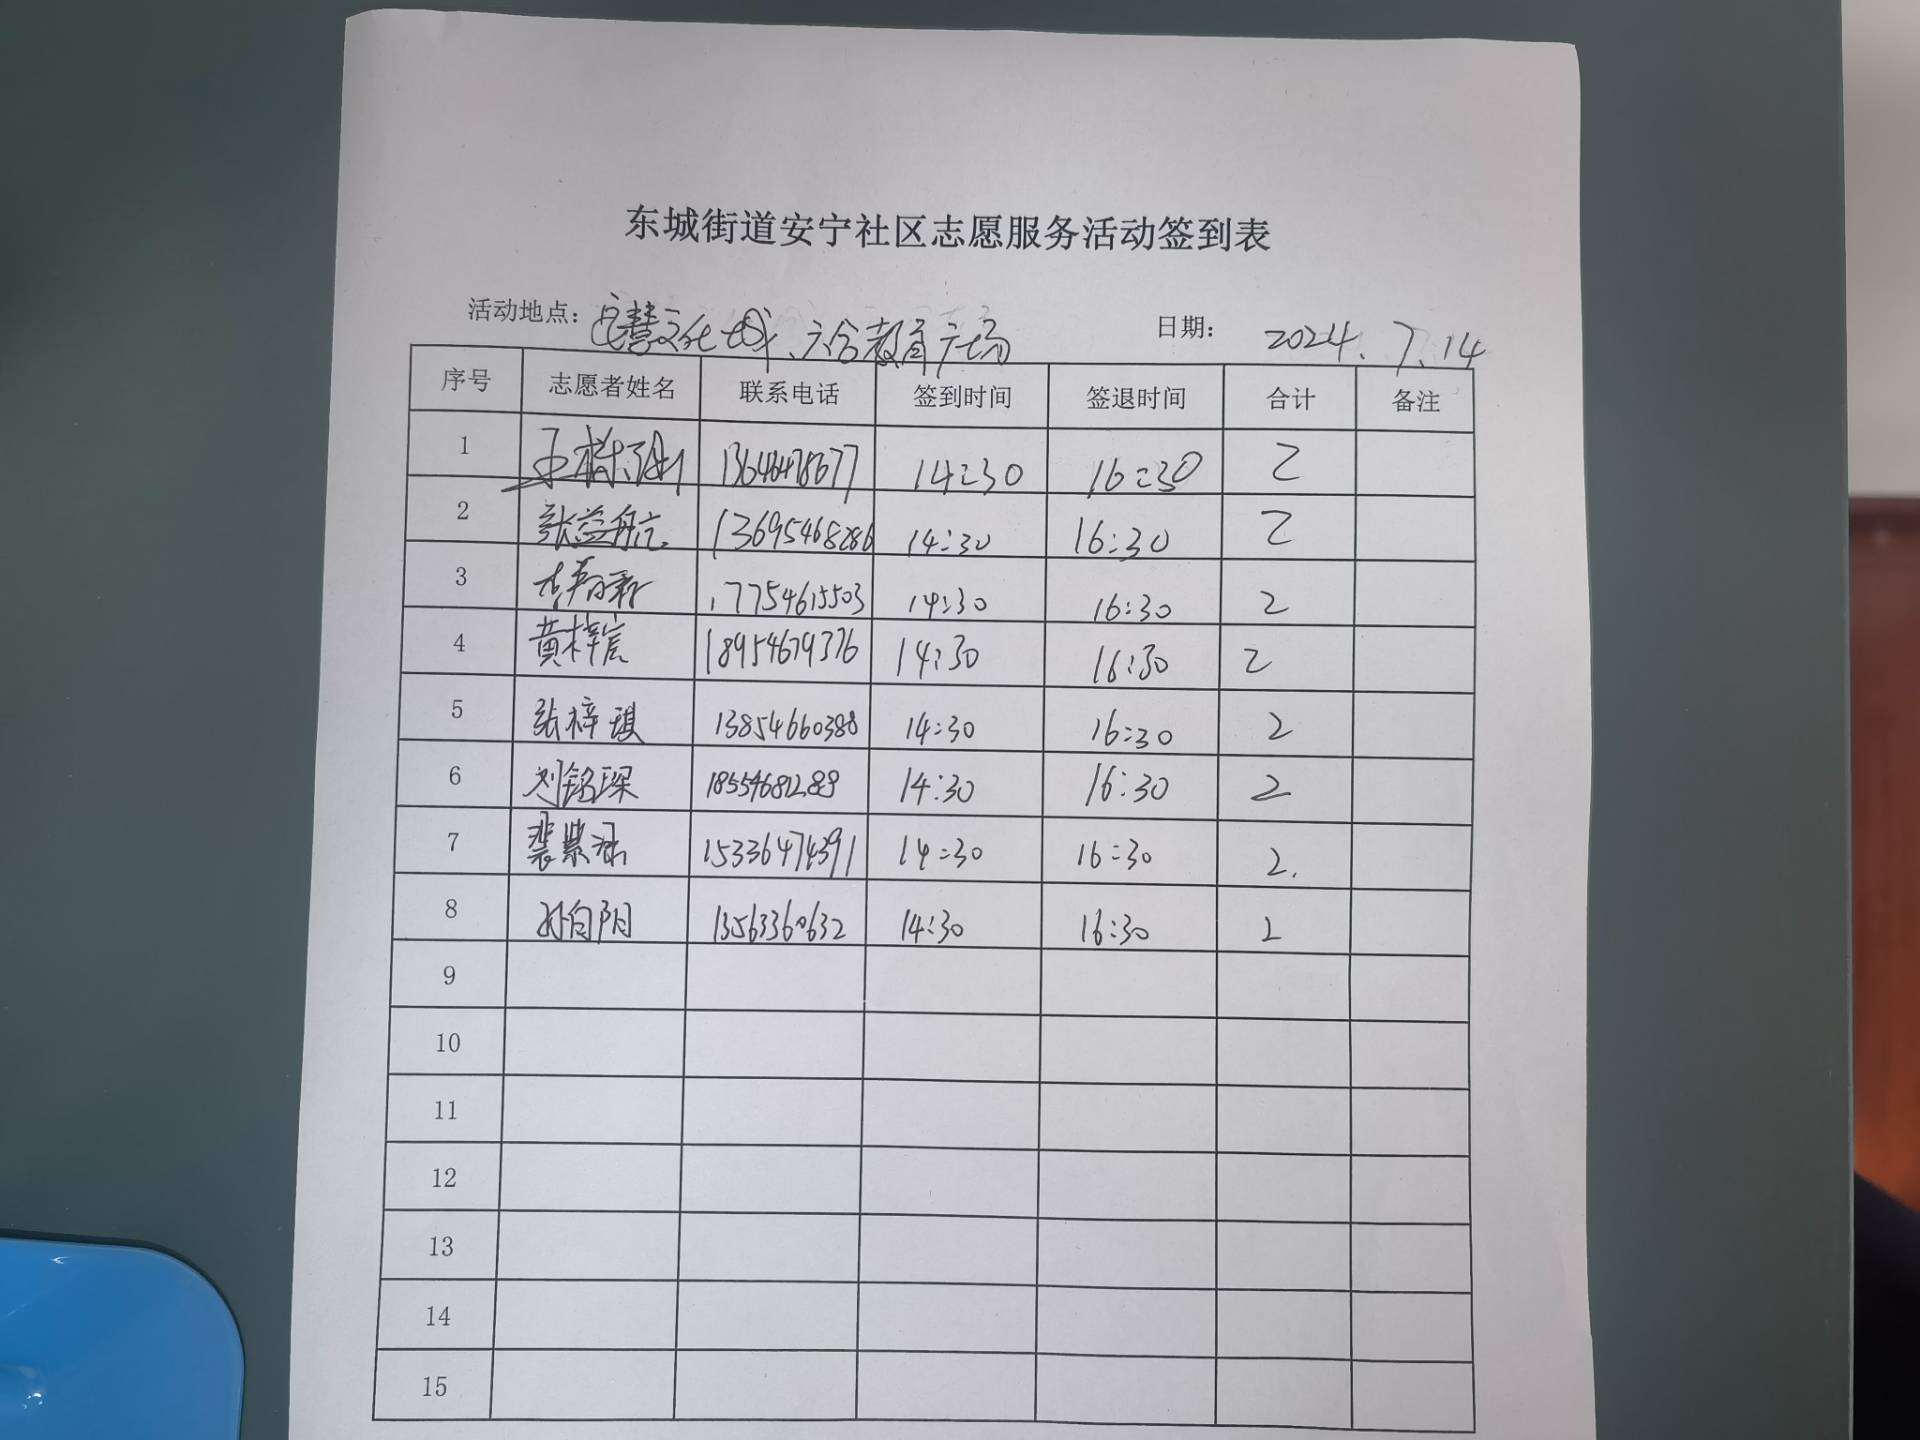 东城街道安宁社区志愿服务活动签到表
活动地点： 慧文化城、六合教育广场 日期： 2024.7.14
序号 志愿者姓名 联系电话 签到时间 签退时间 合计 备注
1 14:30 16:30 2
2 张益航 13695468286 14:30 16:30 2
3 17754615503 14:30 16:30 2
4 黄梓宸 18954679376 14:30 16:30 2
5 张梓琪 13854660388 14:30 16:30 2
6 刘铭琛 14:30 16:30 2
7 裴紫涵 15336474391 14:30 16:30 2.
8 孙向阳 13563360632 14:30 16:30 2
9
10
11
12
13
14
15